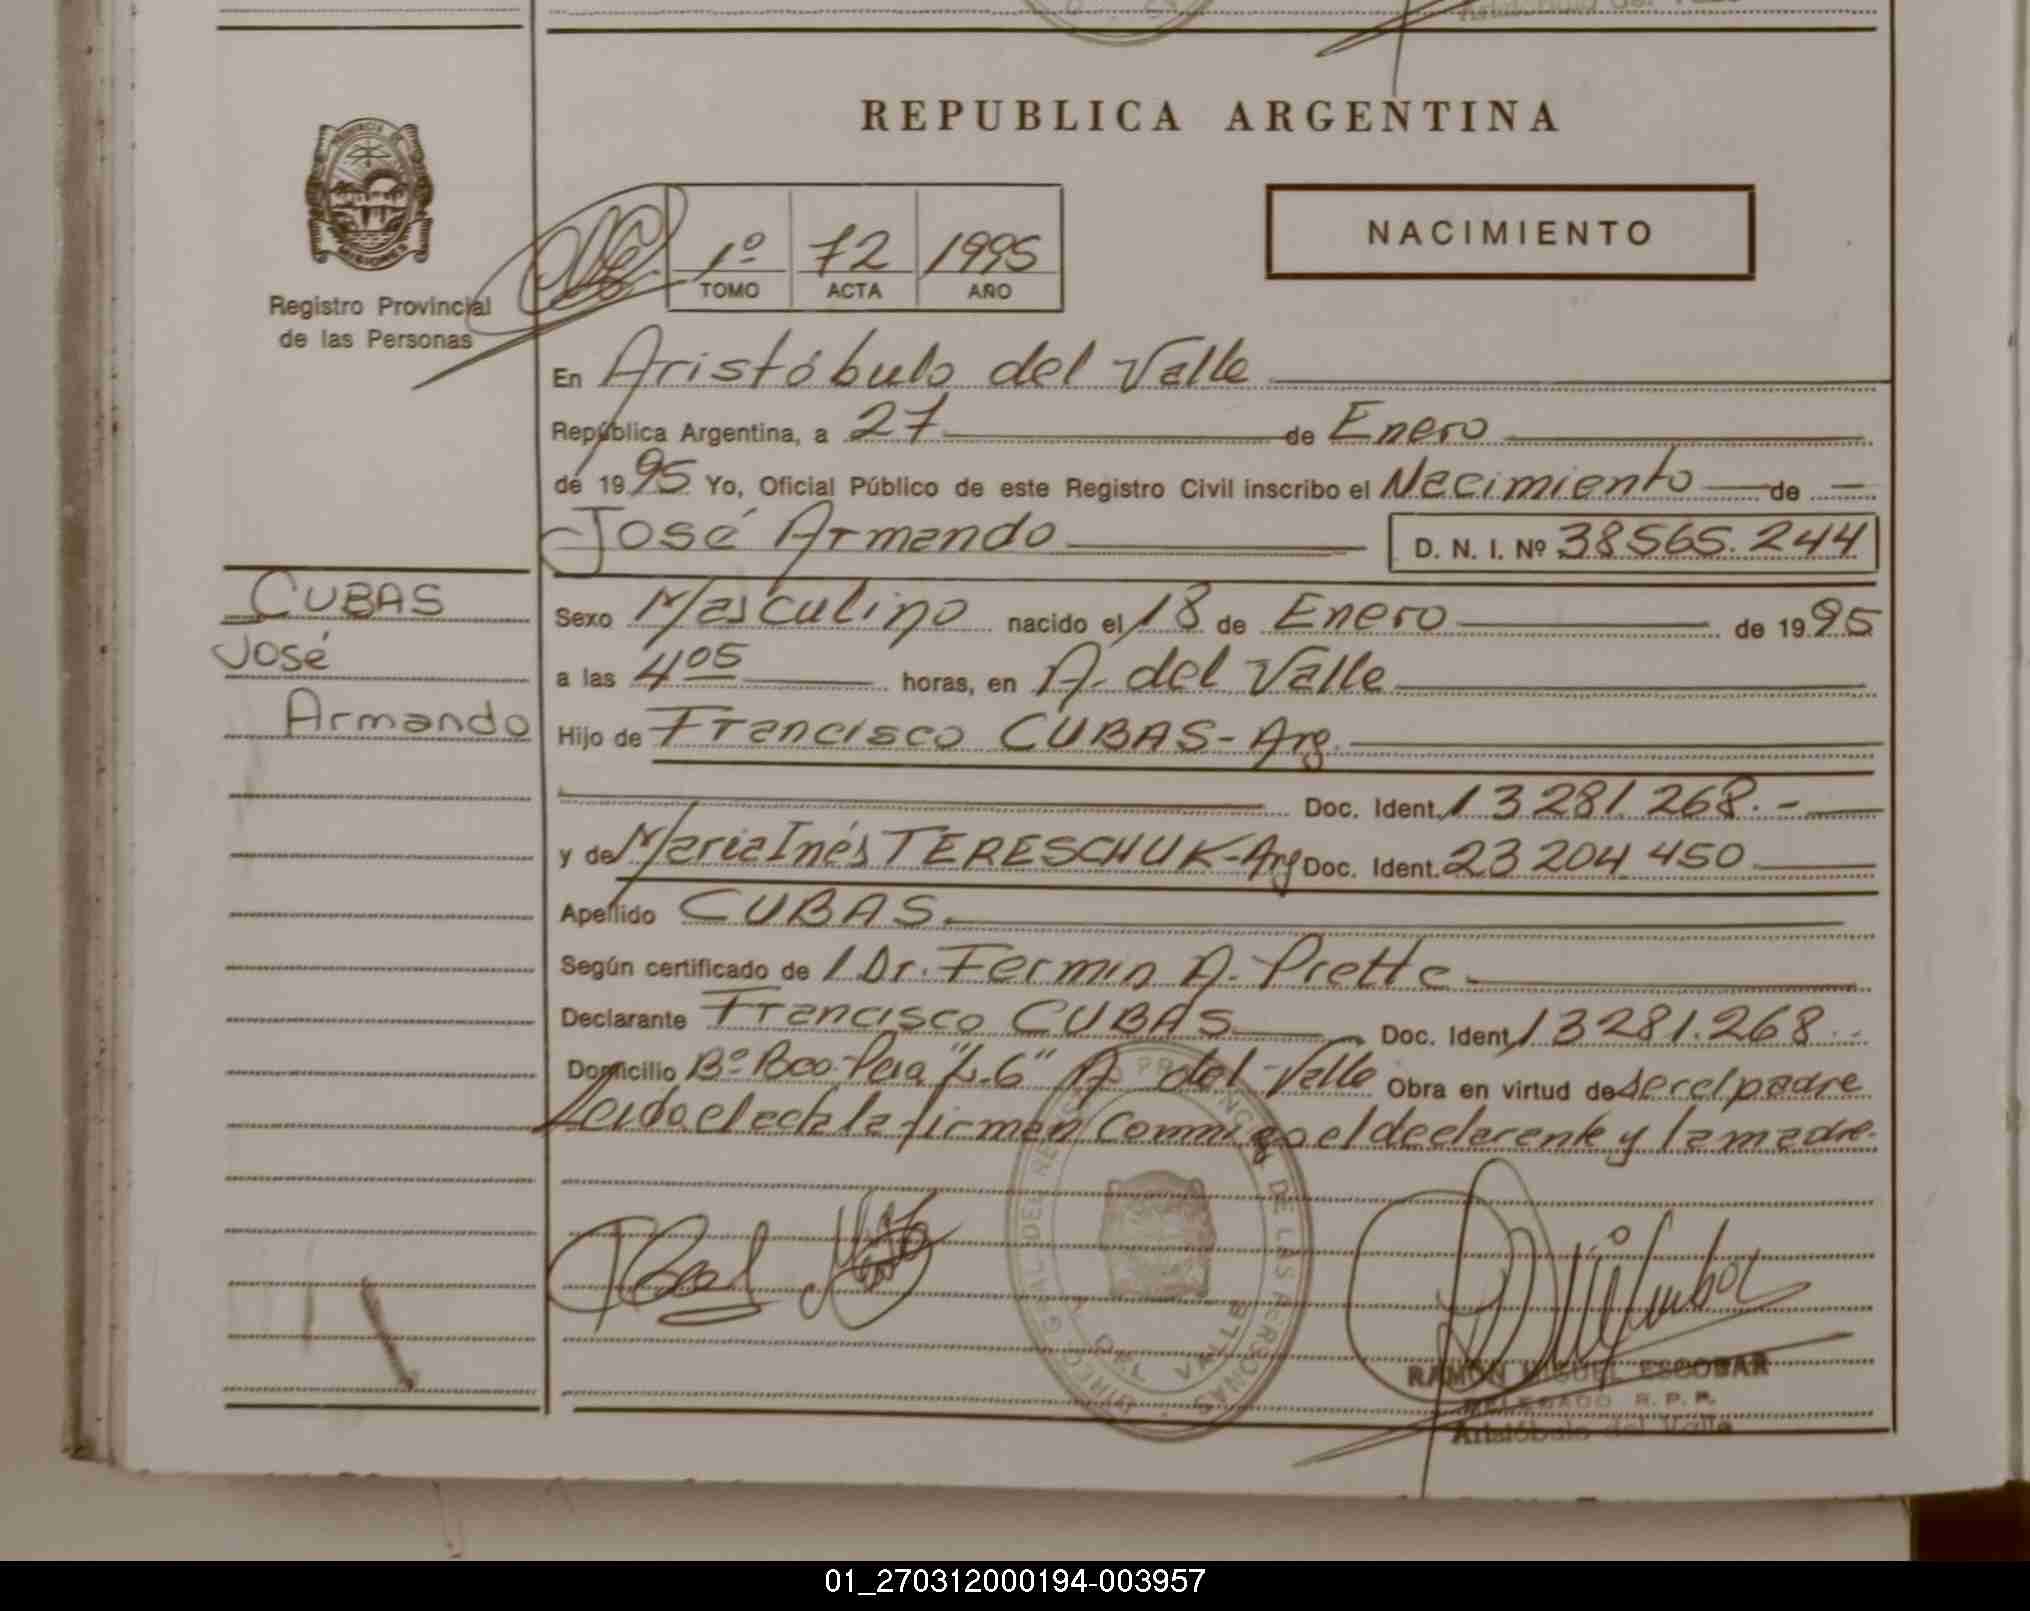 REPUBLICA ARGENTINA
PROVINCIA DE MISIONES
Registro Provincial
de las Personas
1º 72 1995
TOMO ACTA AÑO
NACIMIENTO
En Aristóbulo del Valle
República Argentina, a 27 de Enero
de 1995 Yo, Oficial Público de este Registro Civil inscribo el Nacimiento de
José Armando D. N. I. Nº 38565.244
CUBAS
José
Armando
Sexo Masculino nacido el 18 de Enero de 1995
a las 4 05 horas, en A. del Valle
Hijo de Francisco CUBAS - Arg.
Doc. Ident. 13281.268.-
y de Maria Inés TERESCHUK - Arg Doc. Ident. 23204450
Apellido CUBAS
Según certificado de l Dr. Fermin A. Prette
Declarante Francisco CUBAS Doc. Ident. 13281.268
Domicilio Bº "L.6" A del Valle Obra en virtud de ser el padre
Leida el acta la firman Conmigo el declarante y la madre.
RAMON MIGUEL ESCOBAR
DELEGADO R.P.P.
Aristóbulo del Valle
01_270312000194-003957